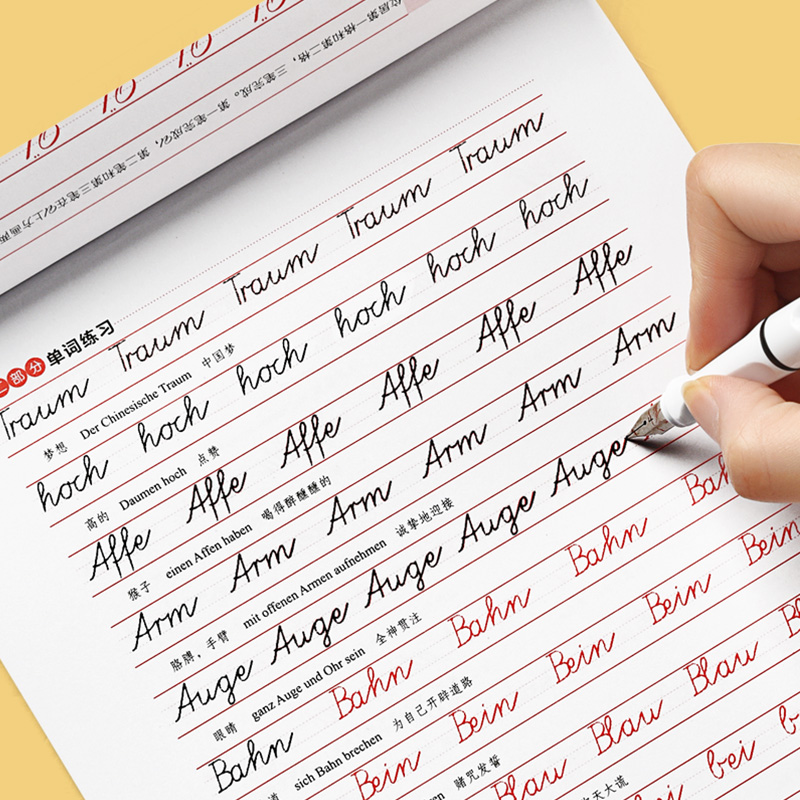 位居第一格和第二格，三笔完成。第一笔完成
第二笔和第三笔在 上方画两
部分 单词练习
Traum Traum Traum Traum Traum
梦想 Der Chinesische Traum 中国梦
hoch hoch hoch hoch hoch hoch
高的 Daumen hoch 点赞
Affe Affe Affe Affe Affe Affe
猴子 einen Affen haben 喝得醉醺醺的
Arm Arm Arm Arm Arm Arm
胳膊，手臂 mit offenen Armen aufnehmen 诚挚地迎接
Auge Auge Auge Auge Auge
眼睛 ganz Auge und Ohr sein 全神贯注
Bahn Bahn Bahn Bahn
sich Bahn brechen 为自己开辟道路
Bein Bein Bein Bein Bein
赌咒发誓
Blau Blau Blau
天大谎
bei